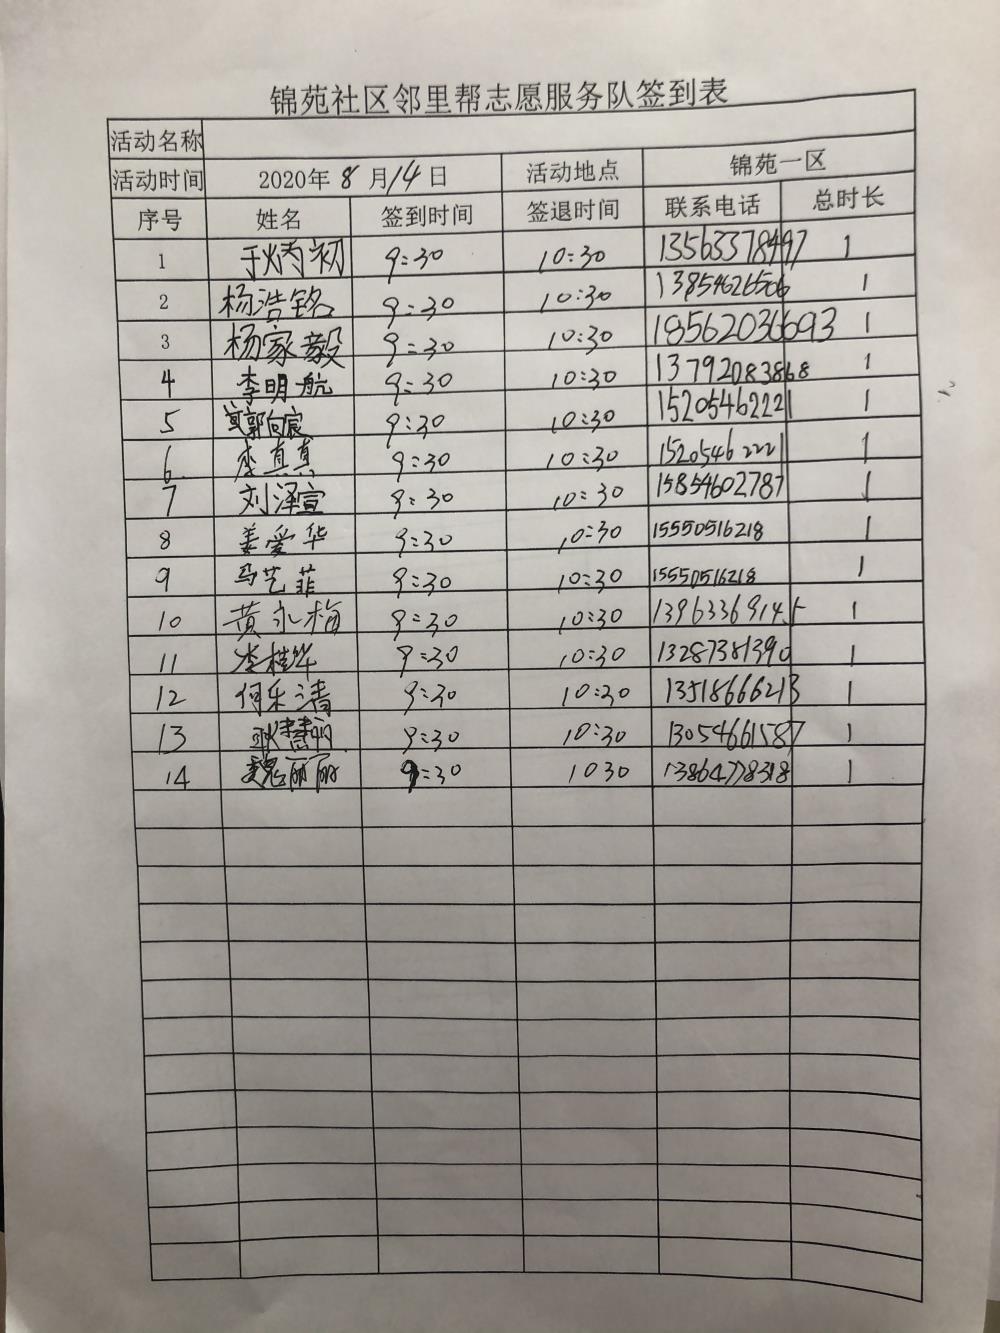 锦苑社区邻里帮志愿服务队签到表
活动名称
活动时间 2020年8月14日 活动地点 锦苑一区
序号 姓名 签到时间 签退时间 联系电话 总时长
1 于炳初 9:30 10:30 13563378497 1
2 杨浩铭 9:30 10:30 13854626506 1
3 杨家毅 9:30 10:30 18562036693 1
4 李明航 9:30 10:30 13792083868 1
5 郭向宸 9:30 10:30 15205462221 1
6 李真真 9:30 10:30 15205462221 1
7 刘泽宣 9:30 10:30 15854602787 1
8 姜爱华 9:30 10:30 15550516218 1
9 马艺菲 9:30 10:30 15550516218 1
10 黄永梅 9:30 10:30 13963369145 1
11 李桂华 9:30 10:30 13287381390 1
12 何乐清 9:30 10:30 13518666213 1
13 耿慧 9:30 10:30 13054661587 1
14 魏丽丽 9:30 1030 13864778318 1